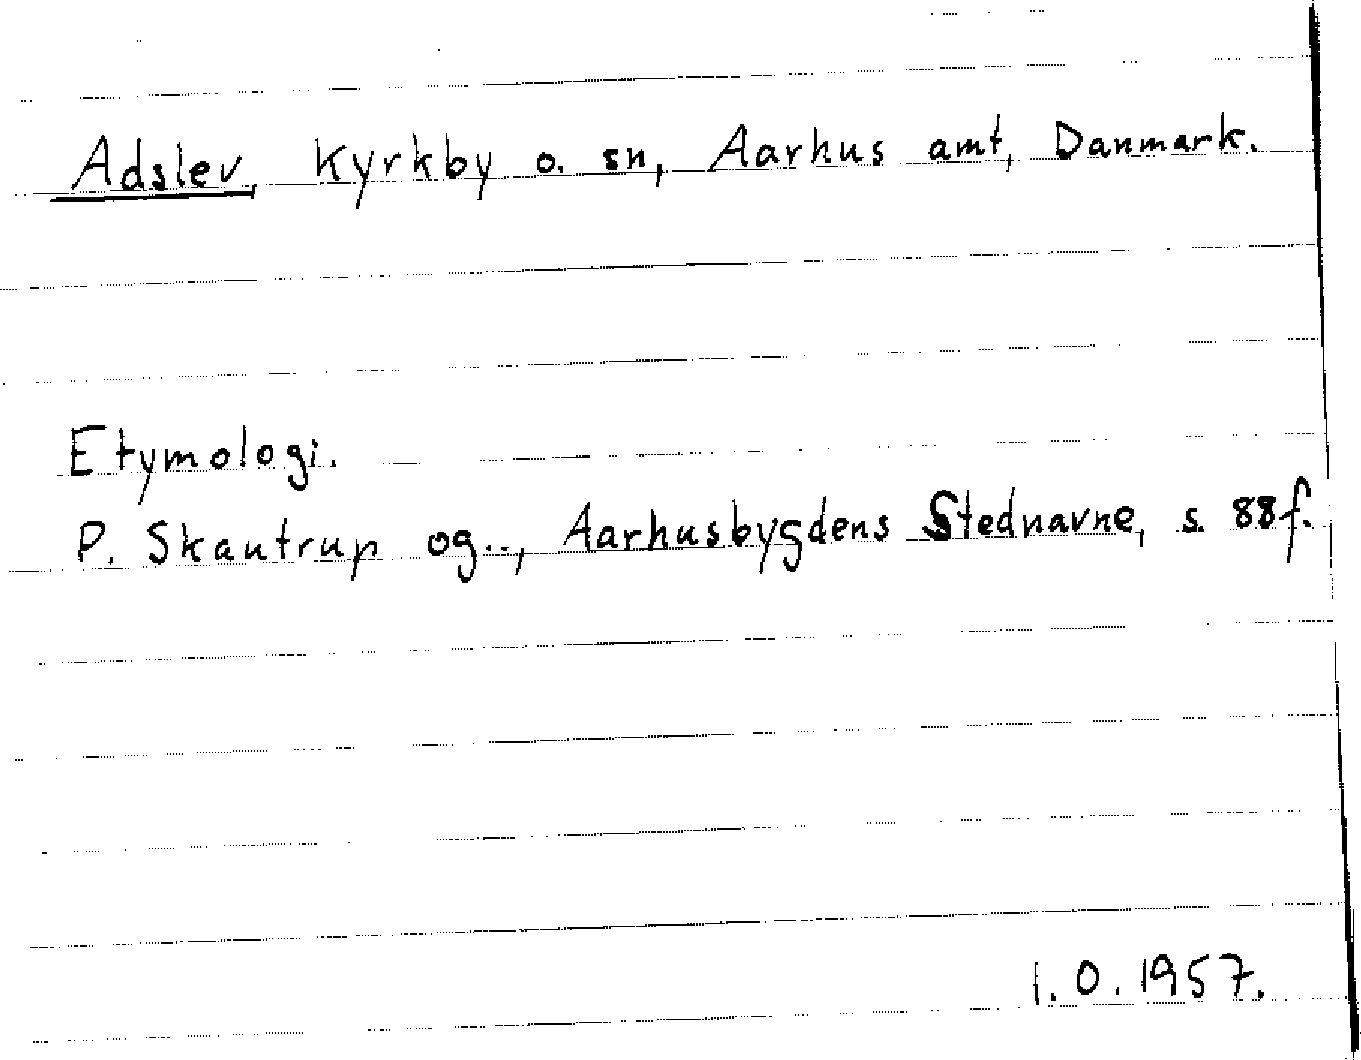 Adslev, Kyrkby o. sn, Aarhus amt, Danmark.
Etymologi.
P. Skautrup og.., Aarhusbygdens Stednavne, s. 88f.
i.o.1957.